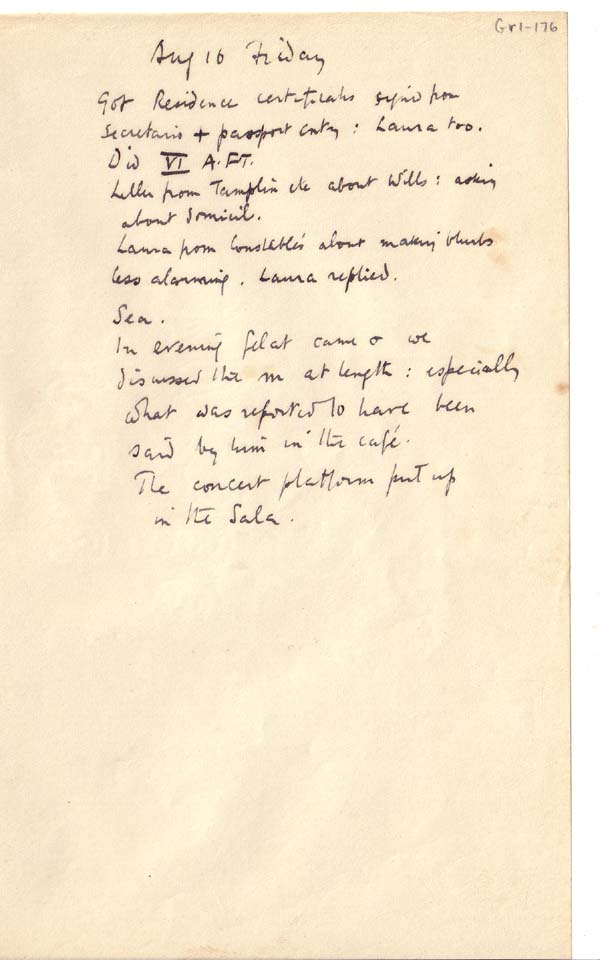 Gr1-176
Aug 16 Friday
Got Residence certificates signed from
Secretario + passport entry : Laura too.
Did VI A.FT.
Letter from Tamplin etc about Wills : asking
about domicil.
Laura from Constables about making blurbs
less alarming. Laura replied.
Sea.
In evening Gelat came & we
discussed the m at length : especially
what was reported to have been
said by him in the café.
The concert platform put up
in the Sala.